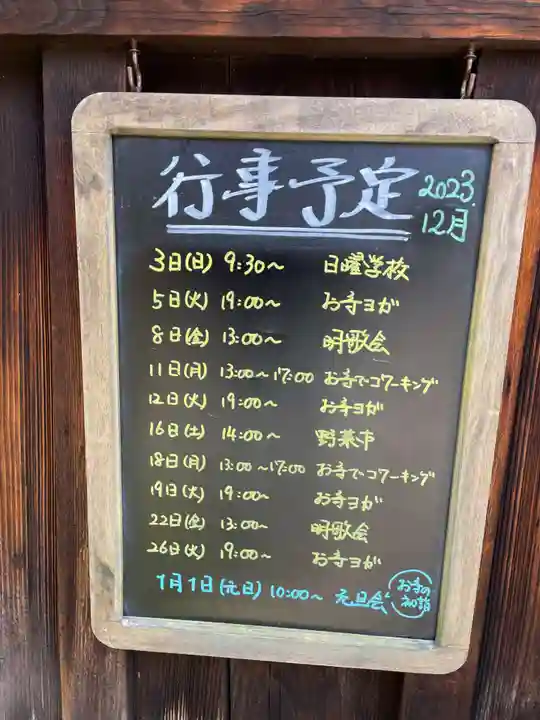 行事予定 2023.
12月
3日(日) 9:30〜 日曜学校
5日(火) 19:00〜 お寺ヨガ
8日(金) 13:00〜 明歌会
11日(月) 13:00〜17:00 お寺でコワーキング
12日(火) 19:00〜 お寺ヨガ
16日(土) 14:00〜 野菜市
18日(月) 13:00〜17:00 お寺でコワーキング
19日(火) 19:00〜 お寺ヨガ
22日(金) 13:00〜 明歌会
26日(火) 19:00〜 お寺ヨガ
1月1日(元日) 10:00〜 元旦会 お寺の
初詣